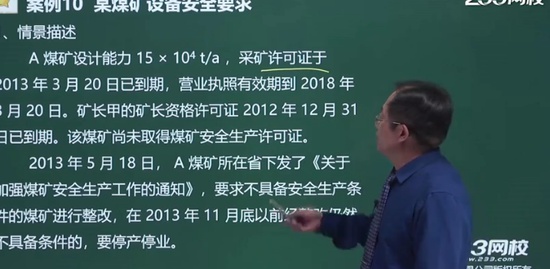 案例10 某煤矿设备安全要求
233网校
、情景描述
A 煤矿设计能力 15 × 10⁴ t/a ，采矿许可证于
2013 年 3 月 20 日已到期，营业执照有效期到 2018 年
月 20 日。矿长甲的矿长资格许可证 2012 年 12 月 31
日已到期。该煤矿尚未取得煤矿安全生产许可证。
2013 年 5 月 18 日， A 煤矿所在省下发了《关于
加强煤矿安全生产工作的通知》，要求不具备安全生产条
件的煤矿进行整改，在 2013 年 11 月底以前经整改仍然
不具备条件的，要停产停业。
3网校
www.233.com
版权所有